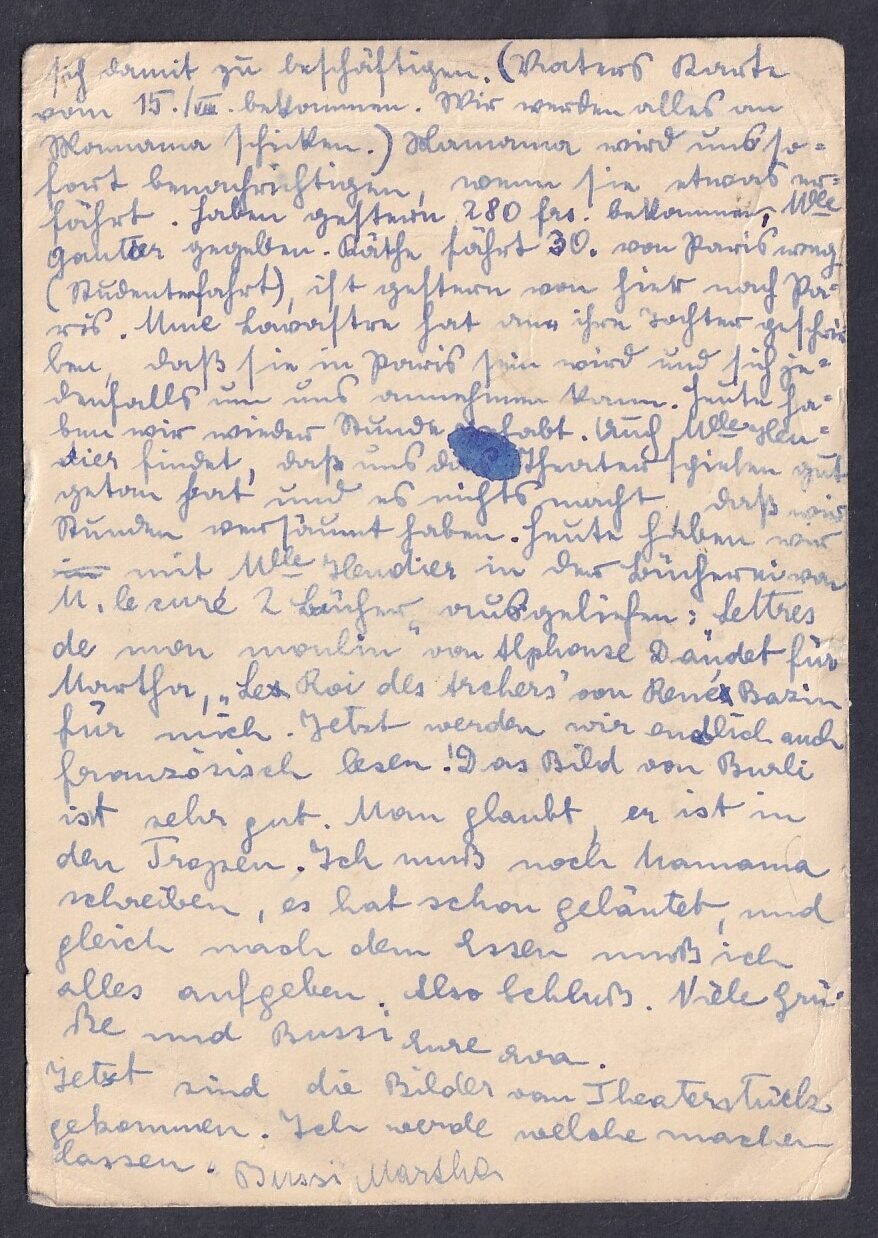 sich damit zu beschäftigen. (Vaters Karte
vom 15./VIII. bekommen. Wir werden alles an
Mamama schicken.) Mamama wird uns so-
fort benachrichtigen, wenn sie etwas er-
fährt. Haben gestern 280 frs. bekommen, Mlle
gegeben. Käthe fährt 30. von Paris weg
(Studentenfahrt), ist gestern von hier nach Pa-
ris. Mme Lavastre hat an ihre Tochter geschrie
ben, daß sie in Paris sein wird und sich je-
denfalls um uns annehmen kann. Heute ha-
ben wir wieder Stunde gehabt. Auch Mlle
findet, daß uns das Theater spielen gut
getan hat und es nichts macht, daß wir
Stunden versäumt haben. Heute haben wir
mit Mlle in der Bücherei von
M. le curé 2 Bücher ausgeliefen: Lettres
de mon moulin" von Alphonse Daudet für
Martha, „Le Roi des Archers" von René Bazin
für mich. Jetzt werden wir endlich auch
französisch lesen! Das Bild von Burli
ist sehr gut. Man glaubt, er ist in
den Tropen. Ich muß noch Mamama
schreiben, es hat schon geläutet, und
gleich nach dem Essen muß ich
alles aufgeben. Also Schluß. Viele Grü-
ße und Bussi Eure Eva.
Jetzt sind die Bilder vom Theaterstück
gekommen. Ich werde welche machen
lassen. Bussi Martha